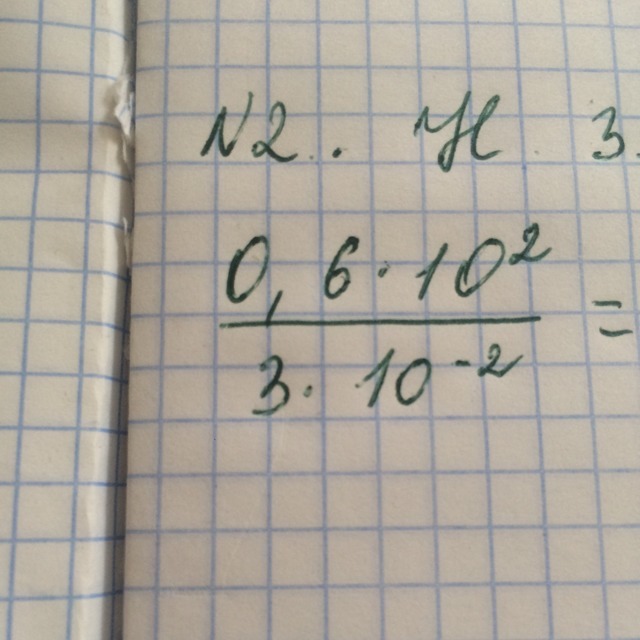 N2. . Н 3.
0,6·10² =
3·10⁻²